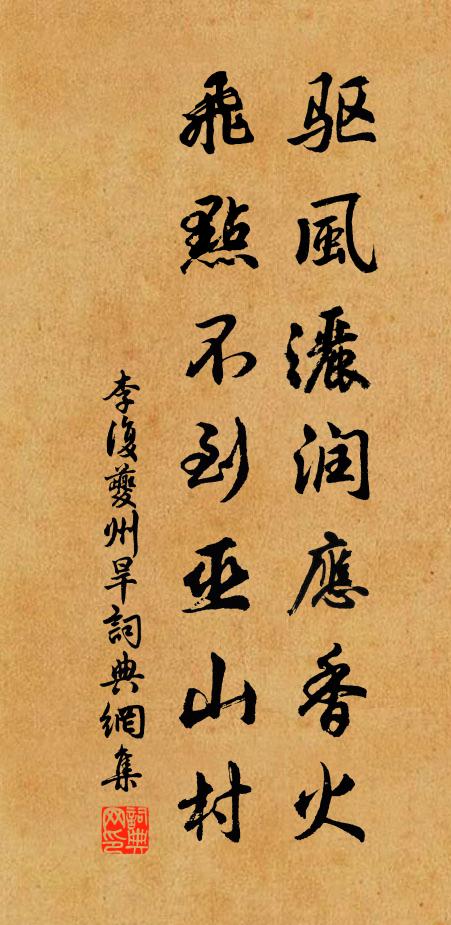 驱風灑润應香火
飛點不到巫山村
李復夔州旱詞典網集
詞典网印